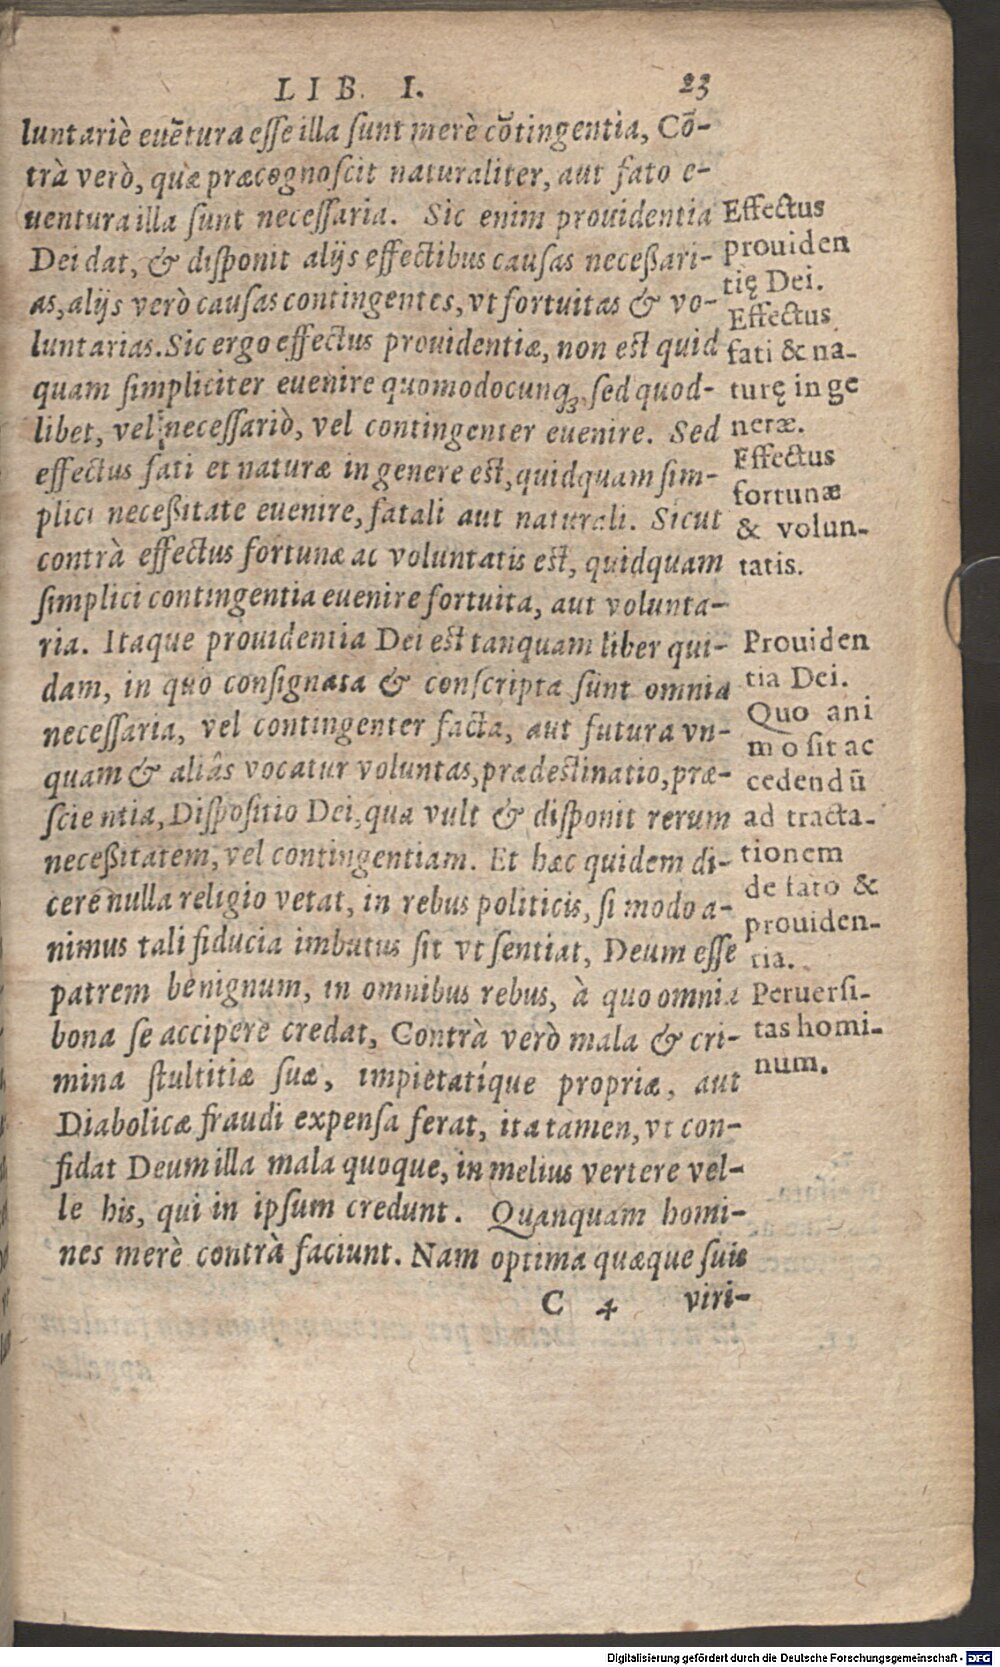 LIB. I. 23
luntariè euẽtura esse illa sunt merè cõtingentia, Cõ-
trà verò, quæ præcognoscit naturaliter, aut fato e-
uentura illa sunt necessaria. Sic enim prouidentia
Dei dat, & disponit alijs effectibus causas necessari-
as, alijs verò causas contingentes, vt fortuitas & vo-
luntarias. Sic ergo effectus prouidentiæ, non est quid
quam simpliciter euenire quomodocunq;, sed quod-
libet, vel necessariò, vel contingenter euenire. Sed
effectus fati et naturæ in genere est, quidquam sim-
plici necessitate euenire, fatali aut naturali. Sicut
contrà effectus fortunæ ac voluntatis est, quidquam
simplici contingentia euenire fortuita, aut volunta-
ria. Itaque prouidentia Dei est tanquam liber qui-
dam, in quo consignata & conscripta sunt omnia
necessaria, vel contingenter facta, aut futura vn-
quam & aliâs vocatur voluntas, prædestinatio, præ-
scientia, Dispositio Dei, qua vult & disponit rerum
necessitatem, vel contingentiam. Et hæc quidem di-
cere nulla religio vetat, in rebus politicis, si modo a-
nimus tali fiducia imbutus sit vt sentiat, Deum esse
patrem benignum, in omnibus rebus, à quo omnia
bona se accipere credat, Contrà verò mala & cri-
mina stultitiæ suæ, impietatíque propriæ, aut
Diabolicæ fraudi expensa ferat, ita tamen, vt con-
fidat Deum illa mala quoque, in melius vertere vel-
le his, qui in ipsum credunt. Quanquam homi-
nes merè contrà faciunt. Nam optima quæque suis
C 4 viri-
Effectus
prouiden
tię Dei.
Effectus
fati & na-
turę in ge
neræ.
Effectus
fortunæ
& volun-
tatis.
Prouiden
tia Dei.
Quo ani
mo sit ac
cedendũ
ad tracta-
tionem
de fato &
prouiden-
tia.
Peruersi-
tas homi-
num.
Digitalisierung gefördert durch die Deutsche Forschungsgemeinschaft - DFG